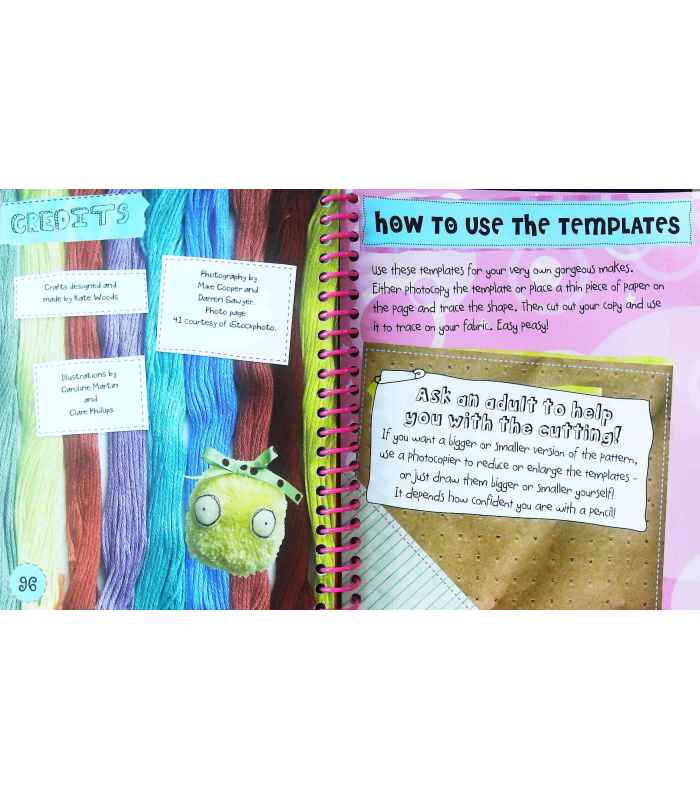 CREDITS
Crafts designed and
made by Kate Woods
Photography by
Mae Cooper and
Darren Sawyer.
Photo page
41 courtesy of iStockphoto.
Illustrations by
Caroline Martin
and
Clare Phillips
96
HOW TO USE THE TEMPLATES
Use these templates for your very own gorgeous makes.
Either photocopy the template or place a thin piece of paper on
the page and trace the shape. Then cut out your copy and use
it to trace on your fabric. Easy peasy!
Ask an adult to help
you with the cutting!
If you want a bigger or smaller version of the pattern,
use a photocopier to reduce or enlarge the templates -
or just draw them bigger or smaller yourself!
It depends how confident you are with a pencil!